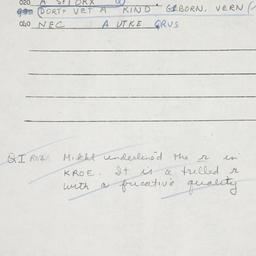 020 A
DORT VET A KIND GEBORN. VERN
040 NEC A UTKE GRUS
QI
Mikkl underlined the r in
KROE. It is a trilled r
with a fricative quality